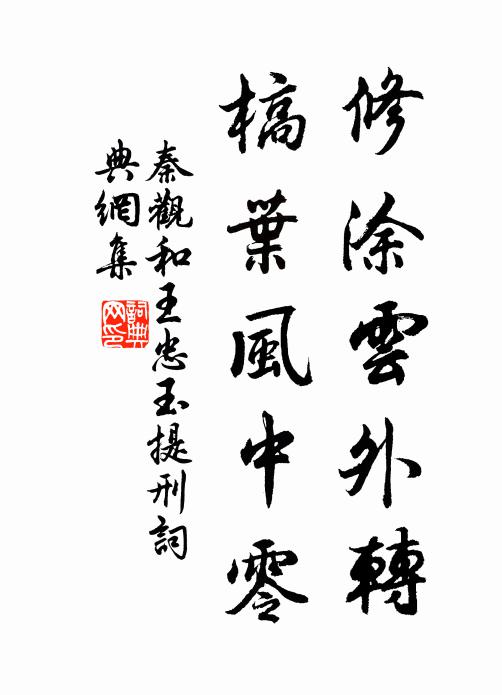 修涂雲外轉
槁葉風中零
秦觀和王忠玉提刑詞
典網集
詞典網印